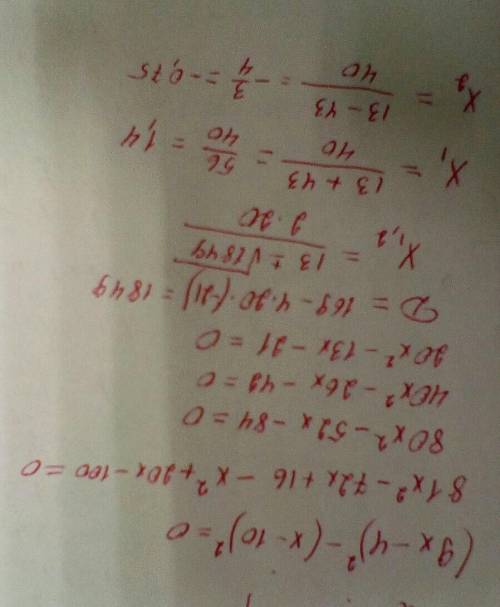 (9x - 4)² - (x - 10)² = 0
81x² - 72x + 16 - x² + 20x - 100 = 0
80x² - 52x - 84 = 0
40x² - 26x - 42 = 0
20x² - 13x - 21 = 0
D = 169 - 4·20·(-21) = 1849
x₁,₂ = (13 ± √1849) / (2·20)
x₁ = (13 + 43) / 40 = 56/40 = 1,4
x₂ = (13 - 43) / 40 = -3/4 = -0,75